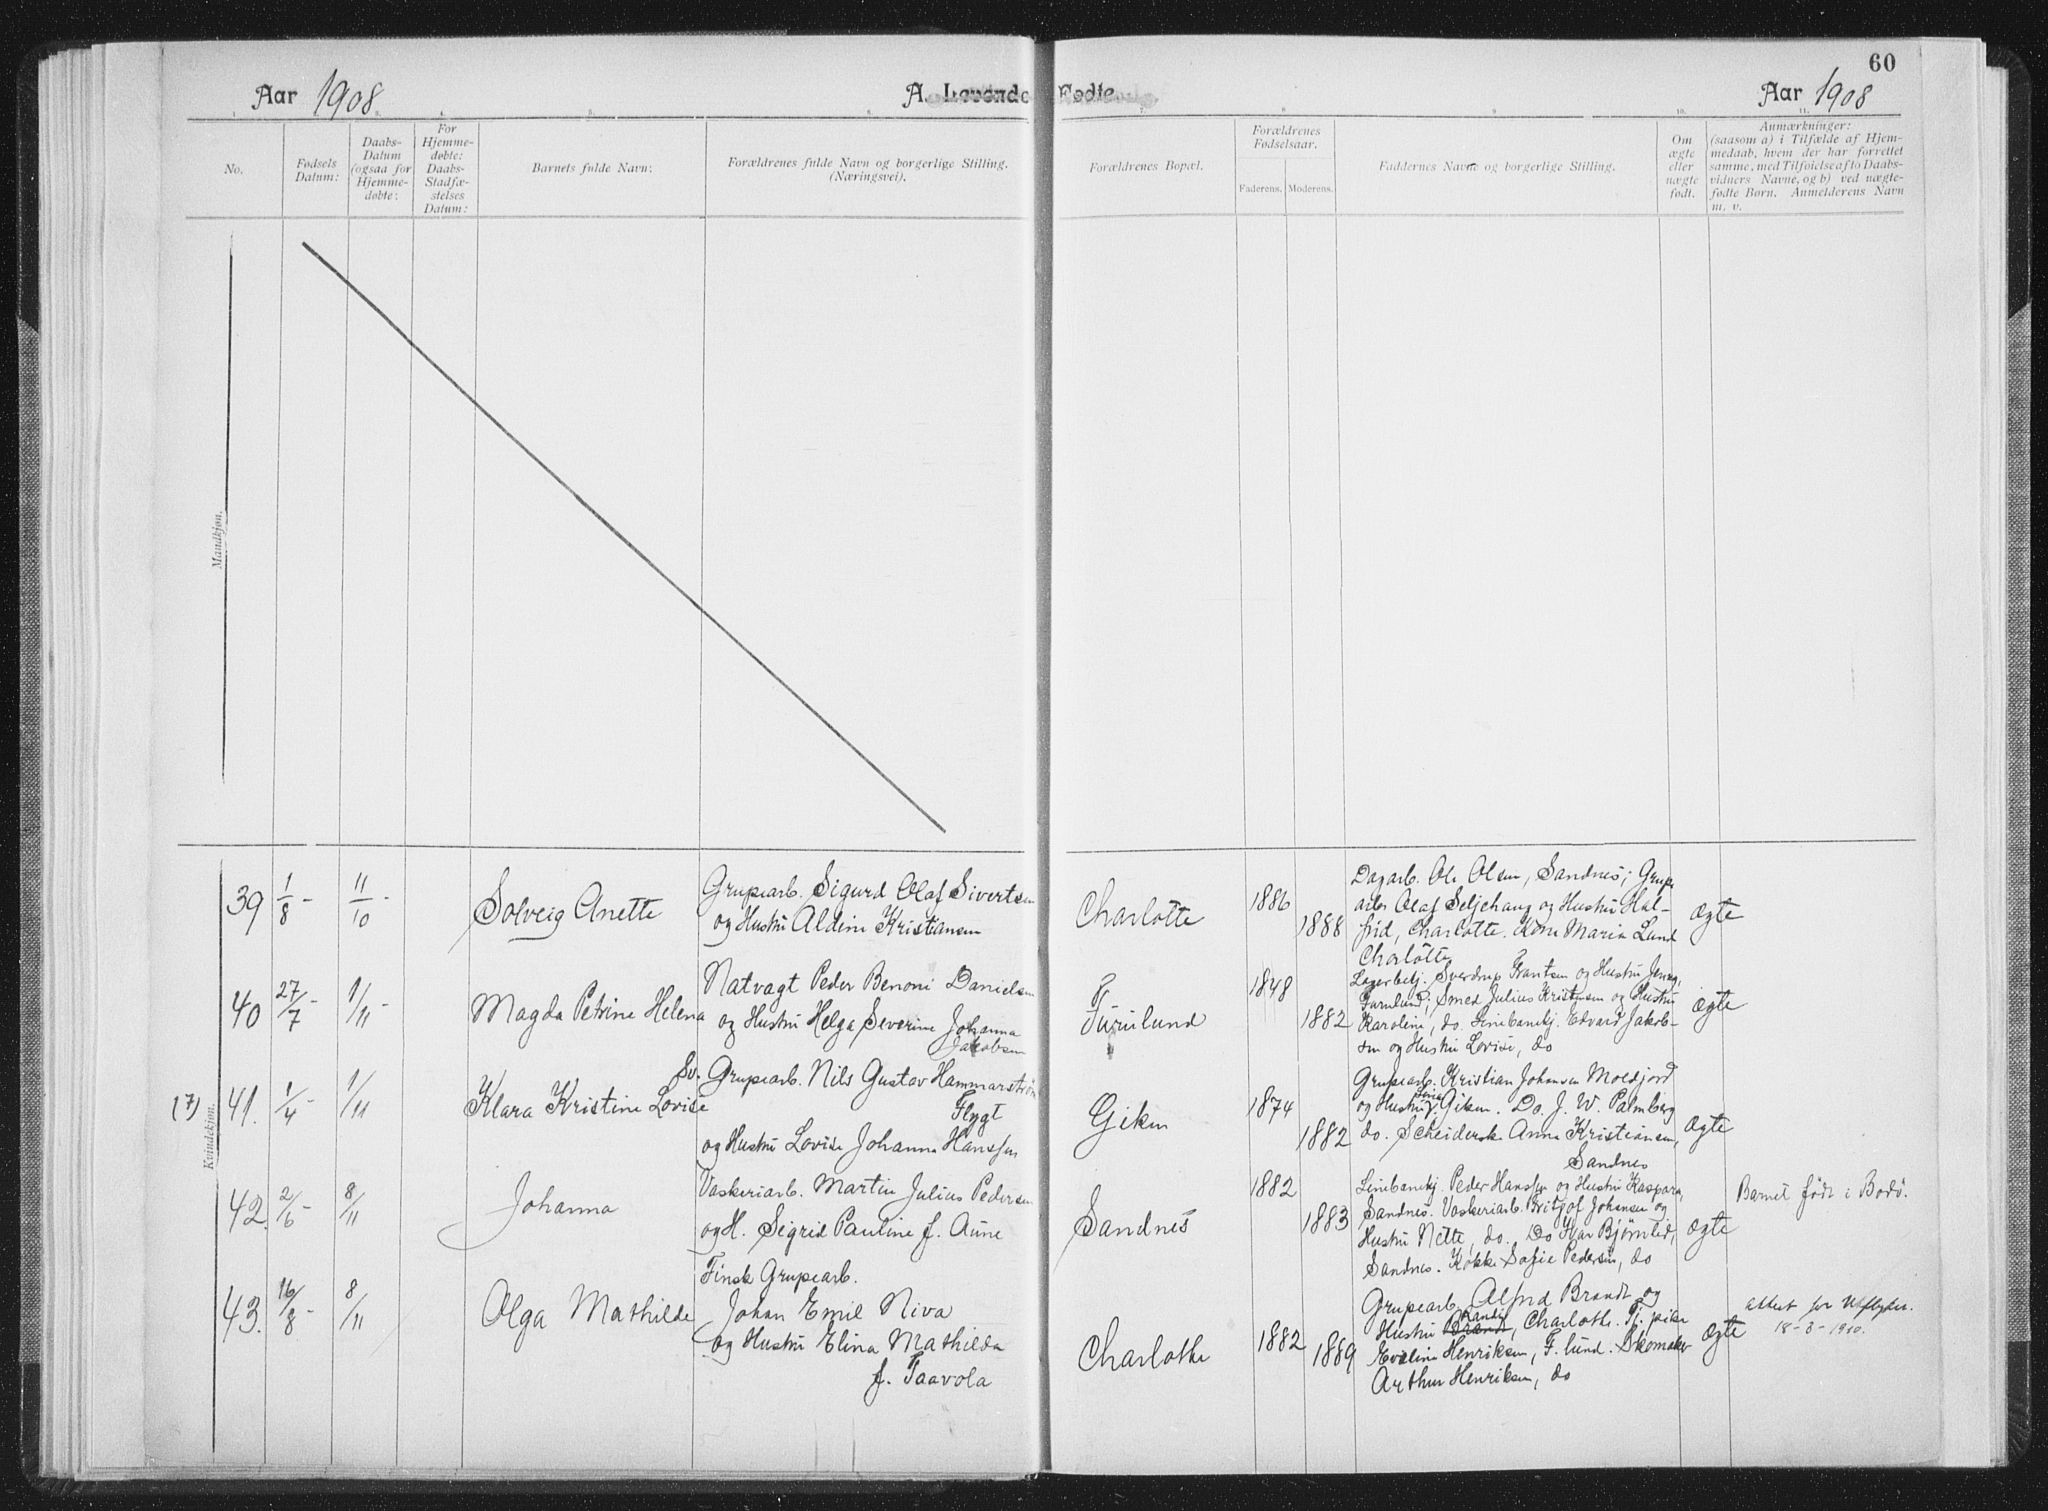 60
Aar 1908
A. Levende Fødte.
Aar 1908
1. 3. 4. 5. 6. 7. 8. 9. 10. 11.
No.
Fødsels
Datum:
Daabs-
Datum
(ogsaa for
Hjemme-
døbte:
For
Hjemme-
døbte:
Daabs-
Stadfæ-
stelses
Datum:
Barnets fulde Navn:
Forældrenes fulde Navn og borgerlige Stilling.
(Næringsvei).
Forældrenes Bopæl.
Forældrenes
Fødselsaar.
Faderens. Moderens.
Faddernes Navne og borgerlige Stilling.
Om
ægte
eller
uægte
født.
Anmærkninger:
(saasom a) i Tilfælde af Hjem-
medaab, hvem der har forrettet
samme, med Tilføielse af to Daabs-
vidners Navne, og b) ved uægte-
fødte Børn. Anmelderens Navn
m. v.
Mandkjøn.
Kvindekjøn.
39 1/8 - 11/10 -
Solveig Anette
Grupearb. Sigurd Olaf Sivertsen
og Hustru Aldine Kristiansen
Charlotte
1886
1888
Dagarb. Ole Olsen, Sandnes; Grupe
arb. Olaf Seljehaug og Hustru Hal-
frid, Charlotte. Kone Marie Lund
Charlotte
ægte
40 27/7 - 1/11 -
Magda Petrine Helena
Natvagt Peder Benoni Danielsen
og Hustru Helga Severine Johanna
Jakobsen
Furulund
1848
1882
Lagerbetj. Sverdrup Frantsen og Hustru Jensy,
Furulund; Smed Julius Kristensen og Hustru
Karoline, do. Linibanebetj. Edvard Jakob-
sen og Hustru Lovise, do
ægte
(7) 41. 1/4 - 1/11
Klara Kristine Lovise
Sv. Grupearb. Nils Gustav Hammarström
Flygt
og Hustru Lovise Johanna Hanssen
Giken
1874
1882
Grupearb. Kristian Johansen Moldjord
og Hustru Giken. Do. J. W. Palmberg
do. Scheidersk. Anna Kristiansen,
Sandnes
ægte
42. 2/6 - 8/11
Johanna
Vaskeriarb. Martin Julius Pedersen
og H. Sigrid Pauline f. Aune
Sandnes
1882
1883
Linibanebetj. Peder Hanssen og Hustru Kaspara,
Sandnes. Vaskeriarb. Fritjof Johansen og
Hustru Nette, do. Do Ivar Bjørnlid,
Sandnes. Kokke Sofie Pedersen, do
ægte
Barnet født i Bodø.
43. 16/8 - 8/11
Olga Mathilde
Finsk Grupearb.
Johan Emil Niva
og Hustru Elina Mathilda
f. Taavola
Charlotte
1882
1889
Grupearb. Alfred Brandt og
Hustru Randi, Charlotte. Tj. pike
Eveline Henriksen, F. lund. Skomaker
Arthur Henriksen, do
ægte
Attest for Utflytn.
18-3-1910.